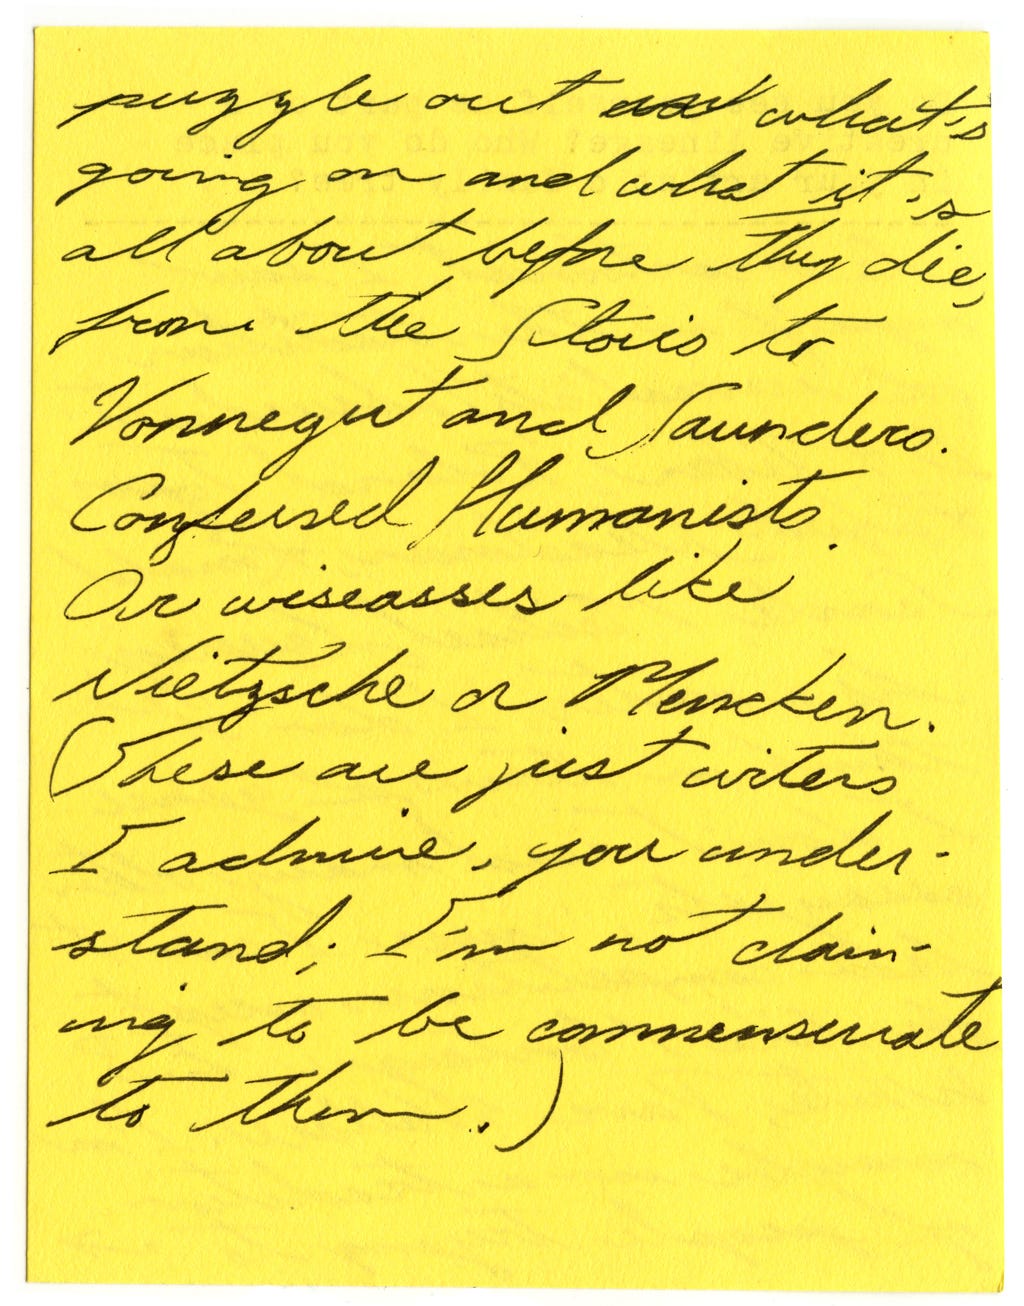 puzzle out what's
going on and what it's
all about before they die,
from the Stoics to
Vonnegut and Saunders.
Humanists.
Or wiseasses like
Nietzsche or Mencken.
(These are just writers
I admire, you under-
stand; I'm not claim-
ing to be commensurate
to them.)